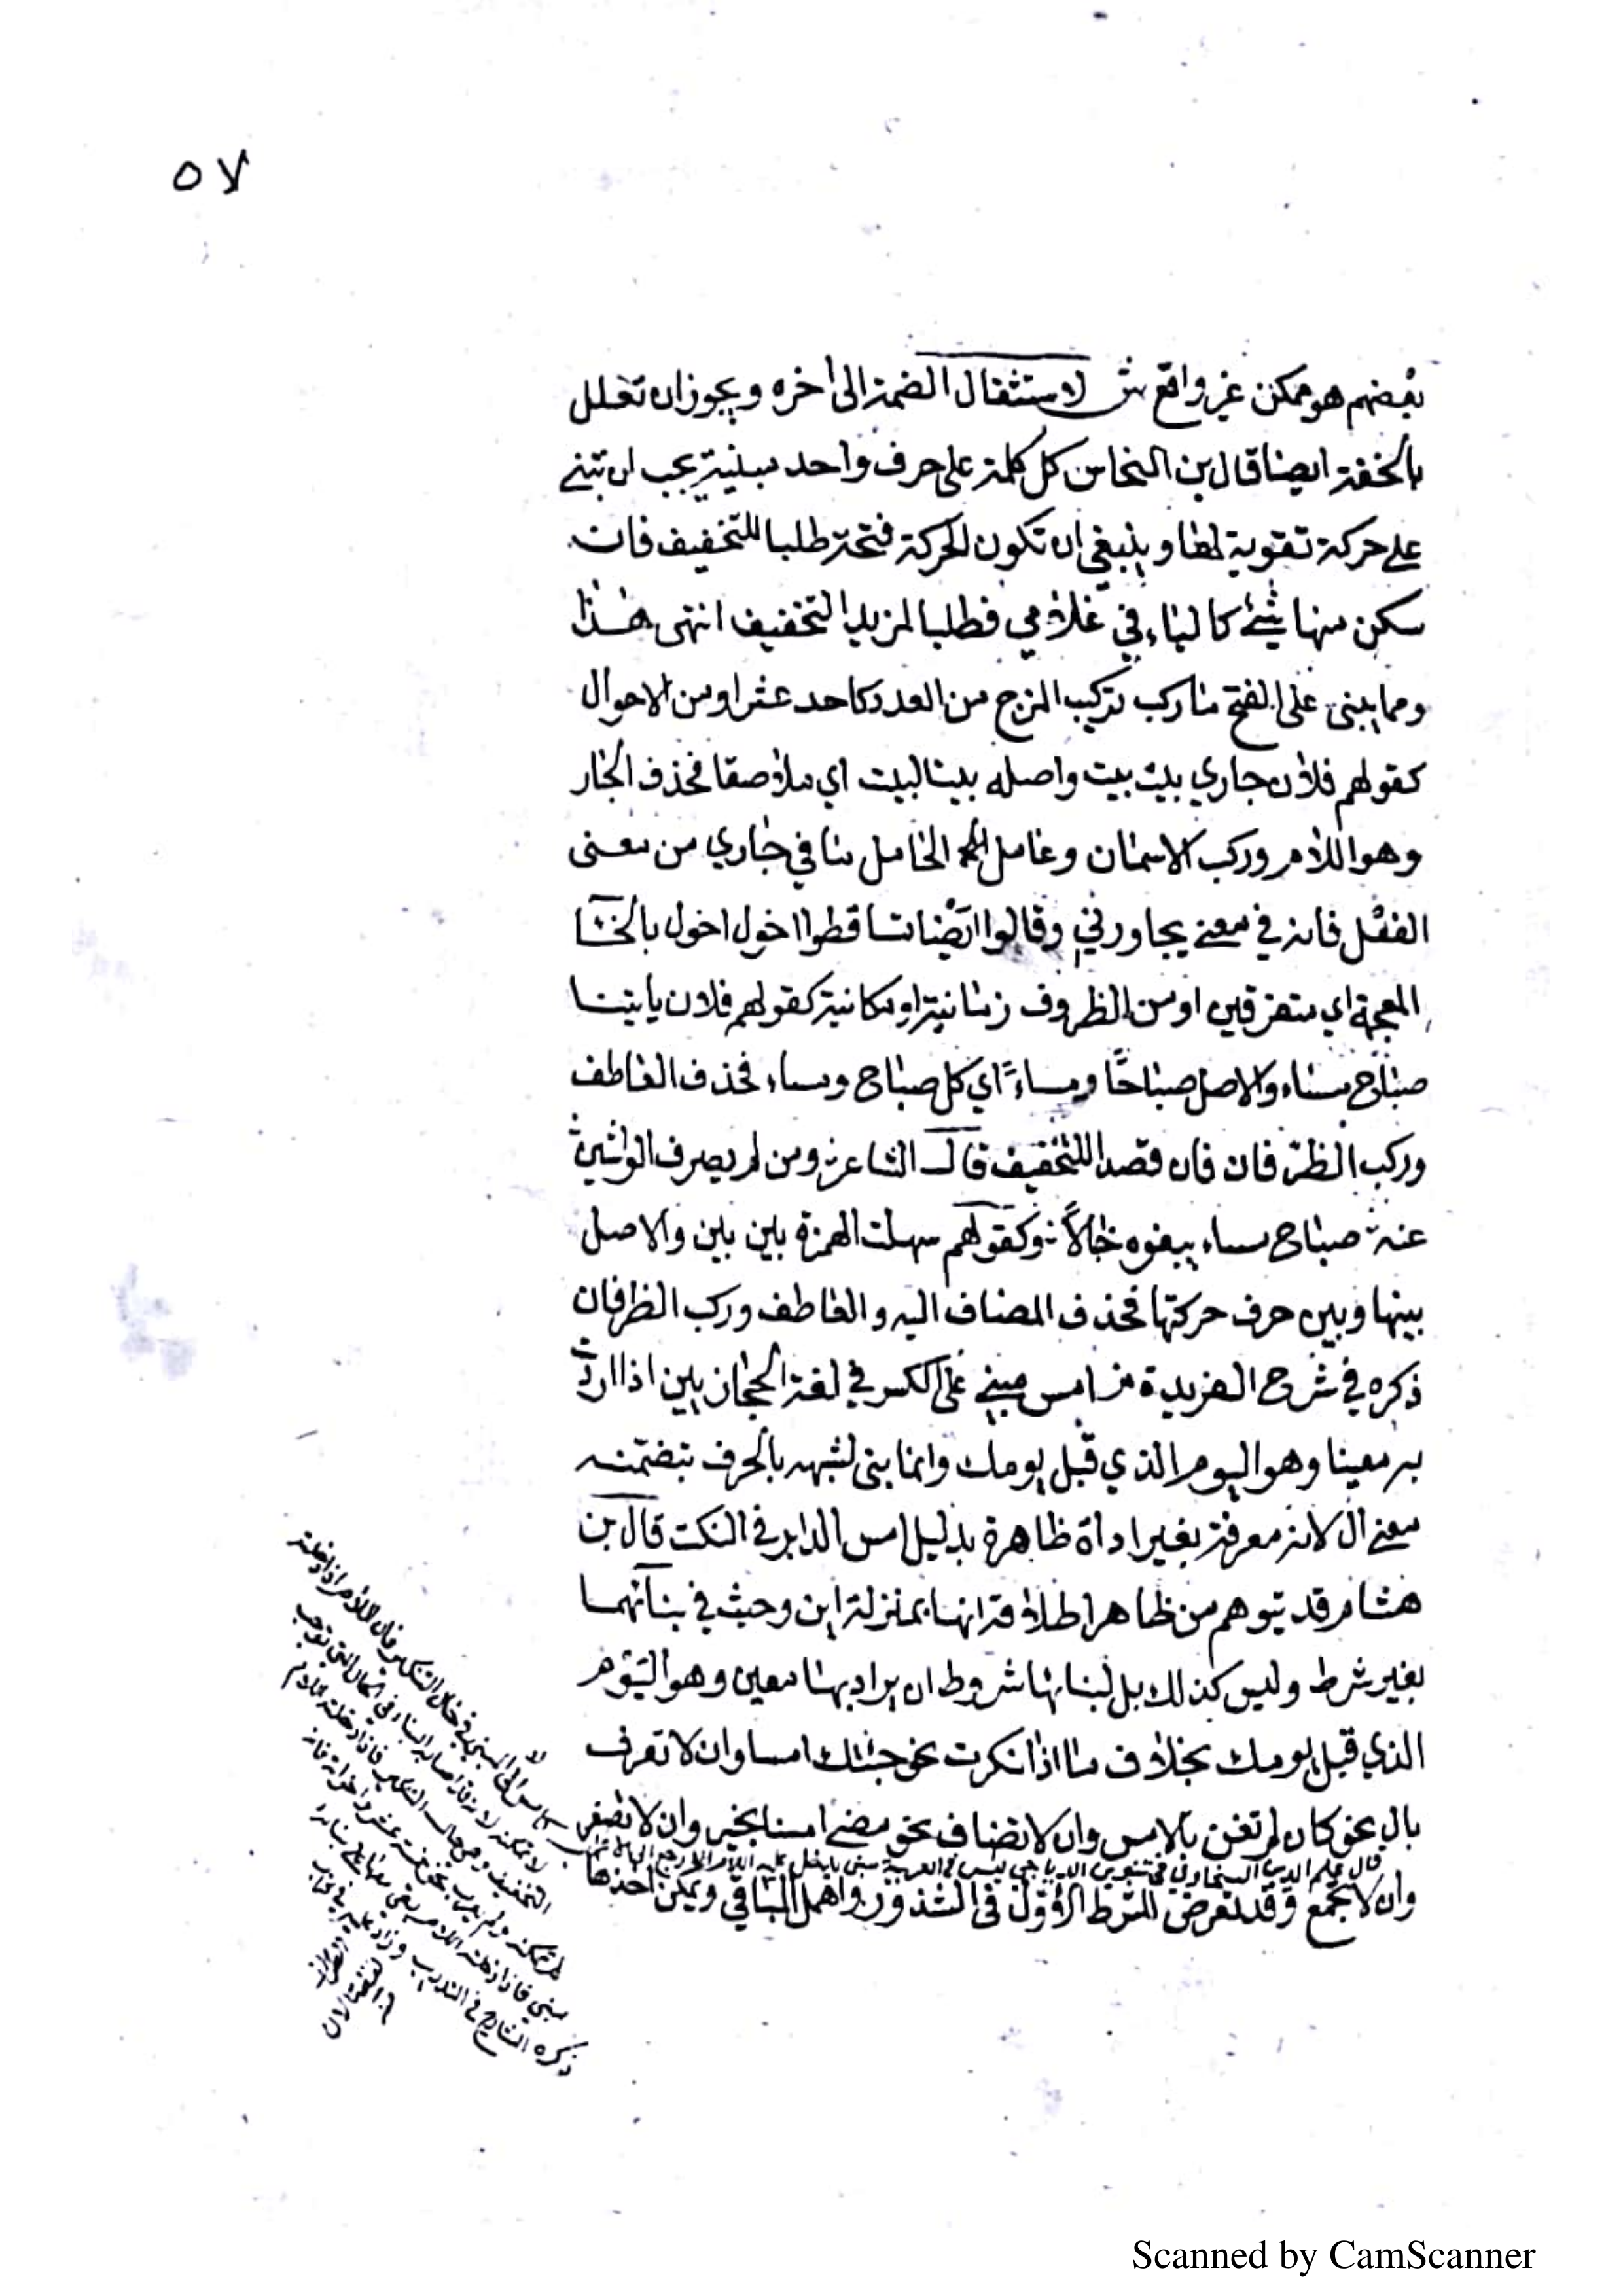 ٥٧
بعضهم هو ممكن غير واقع ش لاستثقال الضمة الى اخره ويجوز ان تعلل
بالخفة ايضا قال بن النحاس كل كلمة على حرف واحد مبنية يجب ان تبنى
على حركة تقوية لها وينبغي ان تكون الحركة فتحة طلبا للتخفيف فان
سكن منها شئ كالياء في غلامي فطلبا لمزيد التخفيف انتهى هذا
ومما يبنى على الفتح ما ركب تركيب المزج من العدد كاحد عشر او من الاحوال
كقولهم فلان جاري بيت بيت واصله بيتا لبيت اي ملاصقا فحذف الجار
وهو اللام وركب الاسمان وعامل الحال ما في جاري من معنى
الفعل فانه في معنى يجاورني وقالوا ايضا تساقطوا اخول اخول بالخا
المعجمة اي متفرقين او من الظروف زمانية او مكانية كقولهم فلان ياتينا
صباح مساء والاصل صباحًا ومساءً اي كل صباح ومساء فحذف العاطف
وركب الظرفان فان قصدا للتخفيف قال الشاعر ومن لم يصرف الواشين
عنه صباح مساء يبغوه خبالاً وكقولهم سهلت الهمزة بين بين والاصل
بينها وبين حرف حركتها فحذف المضاف اليه والعاطف وركب الظرفان
ذكره في شرح الفريدة امس مبني على الكسر في لغة الحجازيين اذا اردت
به معينا وهو اليوم الذي قبل يومك وانما بني لشبهه بالحرف بتضمنه
معنى ال لانه معرفة بغير اداة ظاهرة بدليل امس الدابر في النكت قال بن
هشام قد يتوهم من ظاهر اطلاقه انها بمنزلة اين وحيث في بنائهما
بغير شرط وليس كذلك بل لبنائها شروط ان يراد بها معين وهو اليوم
الذي قبل يومك بخلاف ما اذا نكرت نحو جئتك امسا وان لا تعرف
بال نحو كان لم تغن بالامس وان لا تضاف نحو مضى امسنا بخير وان لا تصغر
قال علم الدين السخاوي في تنوير الدياجي ليس في العربية مبني يدخل عليه اللام الا رجع الى
وان لا تجمع وقد تعرض للشرط الاول في الشذور واهمل الباقي ويمكن اخذها
ذكره الشارح في التدريب وزاد عليه في كتاب